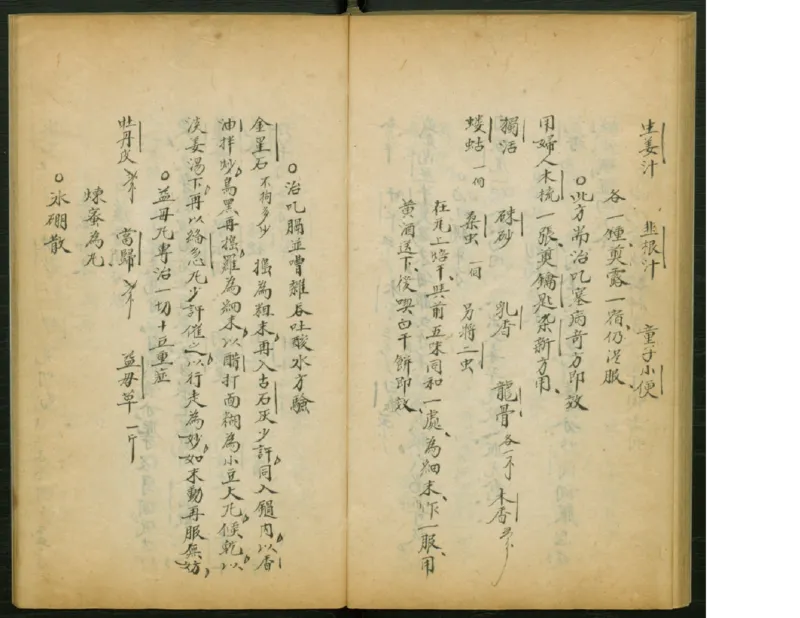 生姜汁 韭根汁 童子小便
各一鍾煎露一宿仍温服
○此方耑治吃塞病奇方即效
用婦人木梳一張煎鑰匙柒新方用
獨活 硃砂 乳香 龍骨 各一 木香
螻蛄 一個 桑虫 一個 另將二虫
在瓦上焙干共前五味同和一處為細末作一服用
黃酒送下後喫白干餅即效
○治吃膈並嘈雜吞吐酸水方驗
金星石 不拘多少 搗為粗末再入古石灰少許同入鍋內以香
油拌炒烏黑再搗羅為細末以醋打面糊為小豆大丸候乾以
淡姜湯下再以 急丸少許催之以行走為妙如未動再服無妨
○益母丸專治一切十五重症
牡丹皮 當歸 益母草 一斤
煉蜜為丸
○氷硼散